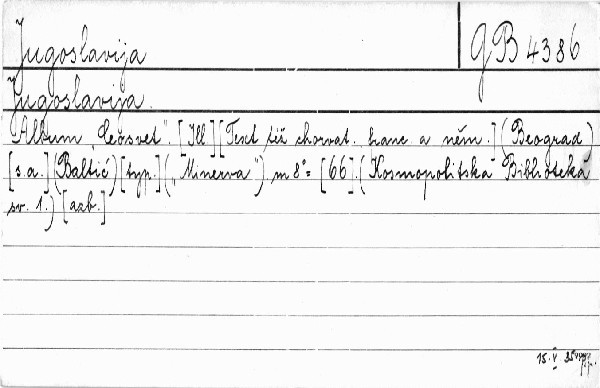 Jugoslavija
GB 4386
Jugoslavija.
Album „Ceosvet". [Ill] [Text též chorvat. franc. a něm.] (Beograd)
[s.a.] (Baltić) [typ.] („Minerva") m 8° = [66]. (Kosmopolitska Biblioteka
sv. 1.) [azb.]
15. V 35